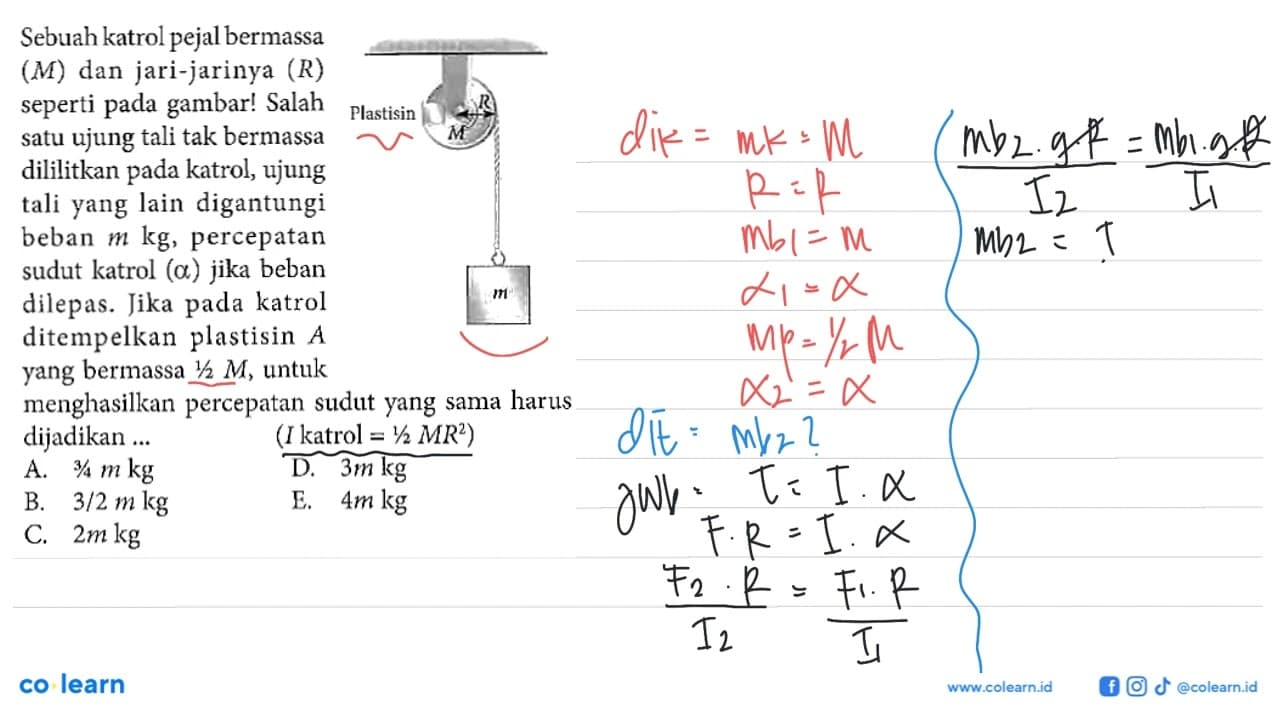 Sebuah katrol pejal bermassa
(M) dan jari-jarinya (R)
seperti pada gambar! Salah
satu ujung tali tak bermassa
dililitkan pada katrol, ujung
tali yang lain digantungi
beban m kg, percepatan
sudut katrol (α) jika beban
dilepas. Jika pada katrol
ditempelkan plastisin A
yang bermassa ½ M, untuk
menghasilkan percepatan sudut yang sama harus
dijadikan ... (I katrol = ½ MR²)
A. ¾ m kg D. 3m kg
B. 3/2 m kg E. 4m kg
C. 2m kg
Plastisin
R
M
m
dik = mk = M
R = R
mb1 = m
α1 = α
Mp = ½ M
α2 = α
dit = mb2?
jwb = τ = I . α
F . R = I . α
F2 . R / I2 = F1 . R / I1
mb2 . g . R / I2 = mb1 . g . R / I1
mb2 = ?
co learn
www.colearn.id
@colearn.id